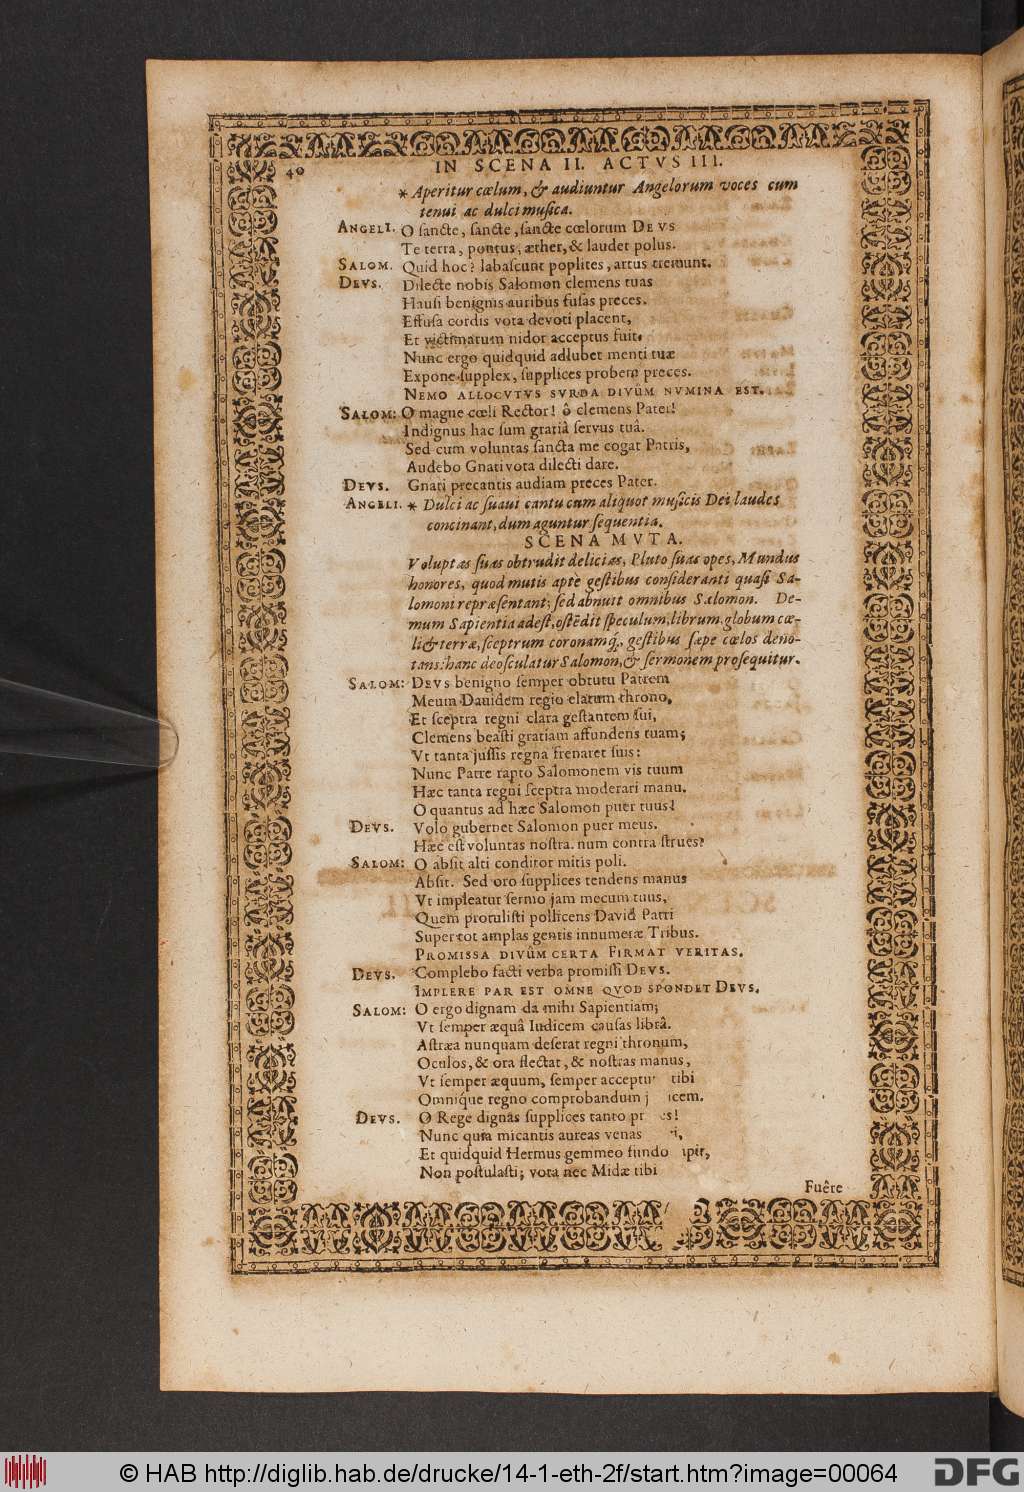 IN SCENA II. ACTVS III.
40
* Aperitur cœlum, & audiuntur Angelorum voces cum
tenui ac dulci musica.
ANGELI. O sancte, sancte, sancte cœlorum DEVS
Te terra, pontus, æther, & laudet polus.
SALOM. Quid hoc? labascunt poplites, artus tremunt.
DEVS. Dilecte nobis Salomon clemens tuas
Hausi benignis auribus fusas preces.
Effusa cordis vota devoti placent,
Et victimarum nidor acceptus fuit.
Nunc ergo quidquid adlubet menti tuæ
Expone supplex, supplices probem preces.
NEMO ALLOCVTVS SVRDA DIVÛM NVMINA EST.
SALOM: O magne cœli Rector! ô clemens Pater!
Indignus hac sum gratiâ servus tuâ.
Sed cum voluntas sancta me cogat Patris,
Audebo Gnati vota dilecti dare.
DEVS. Gnati precantis audiam preces Pater.
ANGELI. * Dulci ac suaui cantu cum aliquot musicis Dei laudes
concinant, dum aguntur sequentia.
SCENA MVTA.
Voluptas suas obtrudit delicias, Pluto suas opes, Mundus
honores, quod mutis aptè gestibus consideranti quasi Sa-
lomoni repræsentant; sed abnuit omnibus Salomon. De-
mum Sapientia adest, ostẽdit speculum, librum, globum cœ-
li & terræ, sceptrum coronamq́;, gestibus sæpe cœlos deno-
tans: hanc deosculatur Salomon, & sermonem prosequitur.
SALOM: DEVS benigno semper obtutu Patrem
Meum Dauidem regio elatum throno,
Et sceptra regni clara gestantem sui,
Clemens beasti gratiam affundens tuam;
Vt tanta jussis regna frenaret suis:
Nunc Patre rapto Salomonem vis tuum
Hæc tanta regni sceptra moderari manu.
O quantus ad hæc Salomon puer tuus!
DEVS. Volo gubernet Salomon puer meus.
Hæc est voluntas nostra. num contra strues?
SALOM: O absit alti conditor mitis poli.
Absit. Sed oro supplices tendens manus
Vt impleatur sermo jam mecum tuus,
Quem protulisti pollicens David Patri
Super tot amplas gentis innumeræ Tribus.
PROMISSA DIVÛM CERTA FIRMAT VERITAS.
DEVS. Complebo facti verba promissi DEVS.
IMPLERE PAR EST OMNE QVOD SPONDET DEVS.
SALOM: O ergo dignam da mihi Sapientiam;
Vt semper æquâ Iudicem causas librâ.
Astræa nunquam deserat regni thronum,
Oculos, & ora flectat, & nostras manus,
Vt semper æquum, semper acceptu tibi
Omnique regno comprobandum j icem.
DEVS. O Rege dignas supplices tanto pr es!
Nunc quia micantis aureas venas i,
Et quidquid Hermus gemmeo fundo ipit,
Non postulasti; vota nec Midæ tibi
Fuêre
© HAB http://diglib.hab.de/drucke/14-1-eth-2f/start.htm?image=00064
DFG